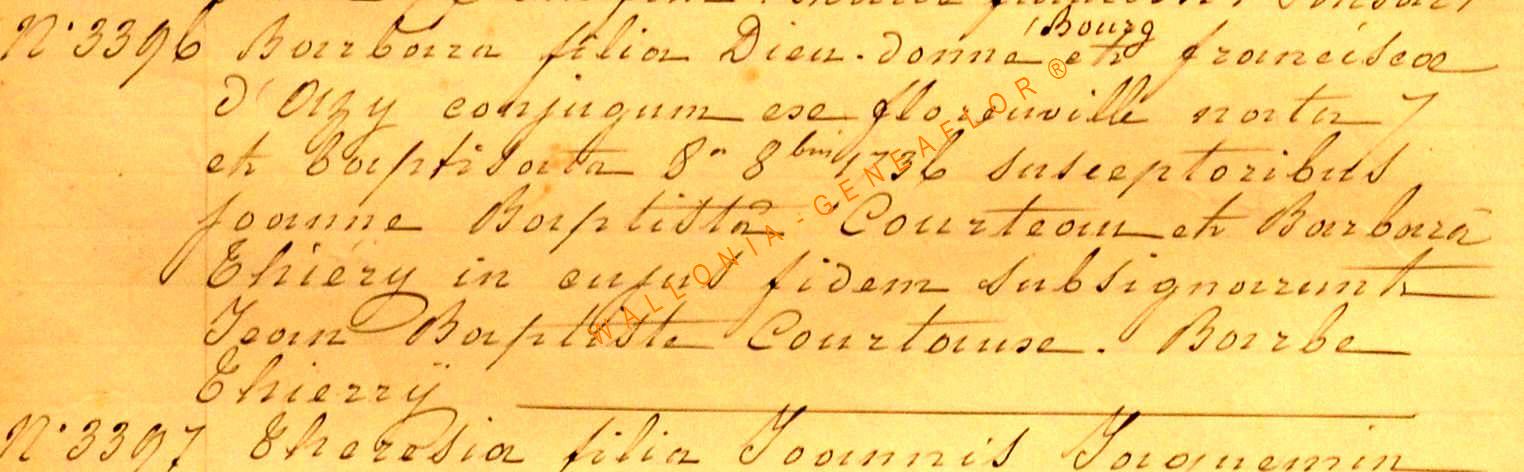 Bourg
N° 3396 Barbara filia Dieu-donné et franciscæ
d'Orzy conjugum exe florenville nata 7
et baptisata 8a 8bris 1736 susceptoribus
joanne Baptistâ Courteau et Barbarâ
Thiéry in cujus fidem subsignarunt
Jean Baptiste Courtause. Barbe
Thierrÿ
N° 3397 Theresia filia Joannis Jaquemin
WALLONIA-GENEAFLOR ®